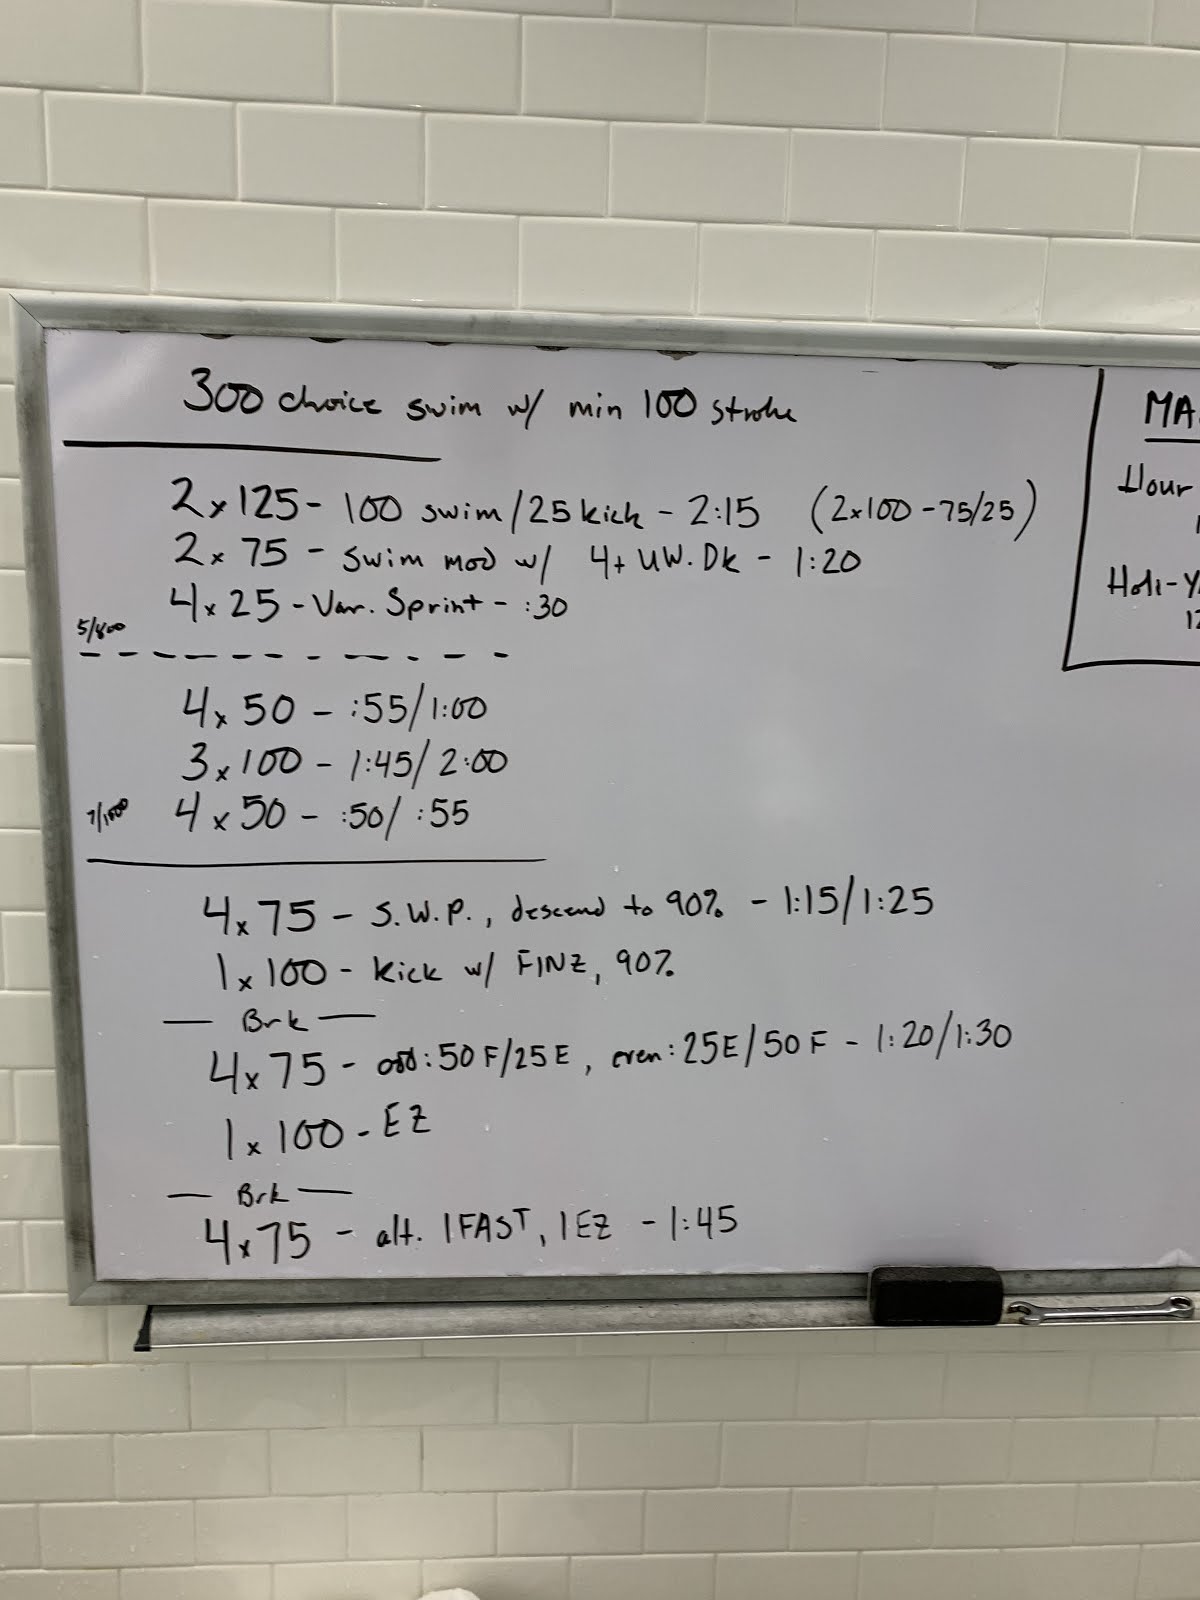 300 choice swim w/ min 100 stroke
2x125 - 100 swim/25 kick - 2:15 (2x100 - 75/25)
2x 75 - swim mod w/ 4+ UW. Dk - 1:20
4x25 - Var. Sprint - :30
5/800
4x50 - :55/1:00
3x100 - 1:45/2:00
4x50 - :50/ :55
4x75 - S.W.P., descend to 90% - 1:15/1:25
1x100 - kick w/ FINZ, 90%
— Brk —
4x75 - odd: 50 F/25 E, even: 25E/50 F - 1:20/1:30
1x100 - EZ
— Brk —
4x75 - alt. 1 FAST, 1 EZ - 1:45
MA
Hour
1
Holi-Y
12